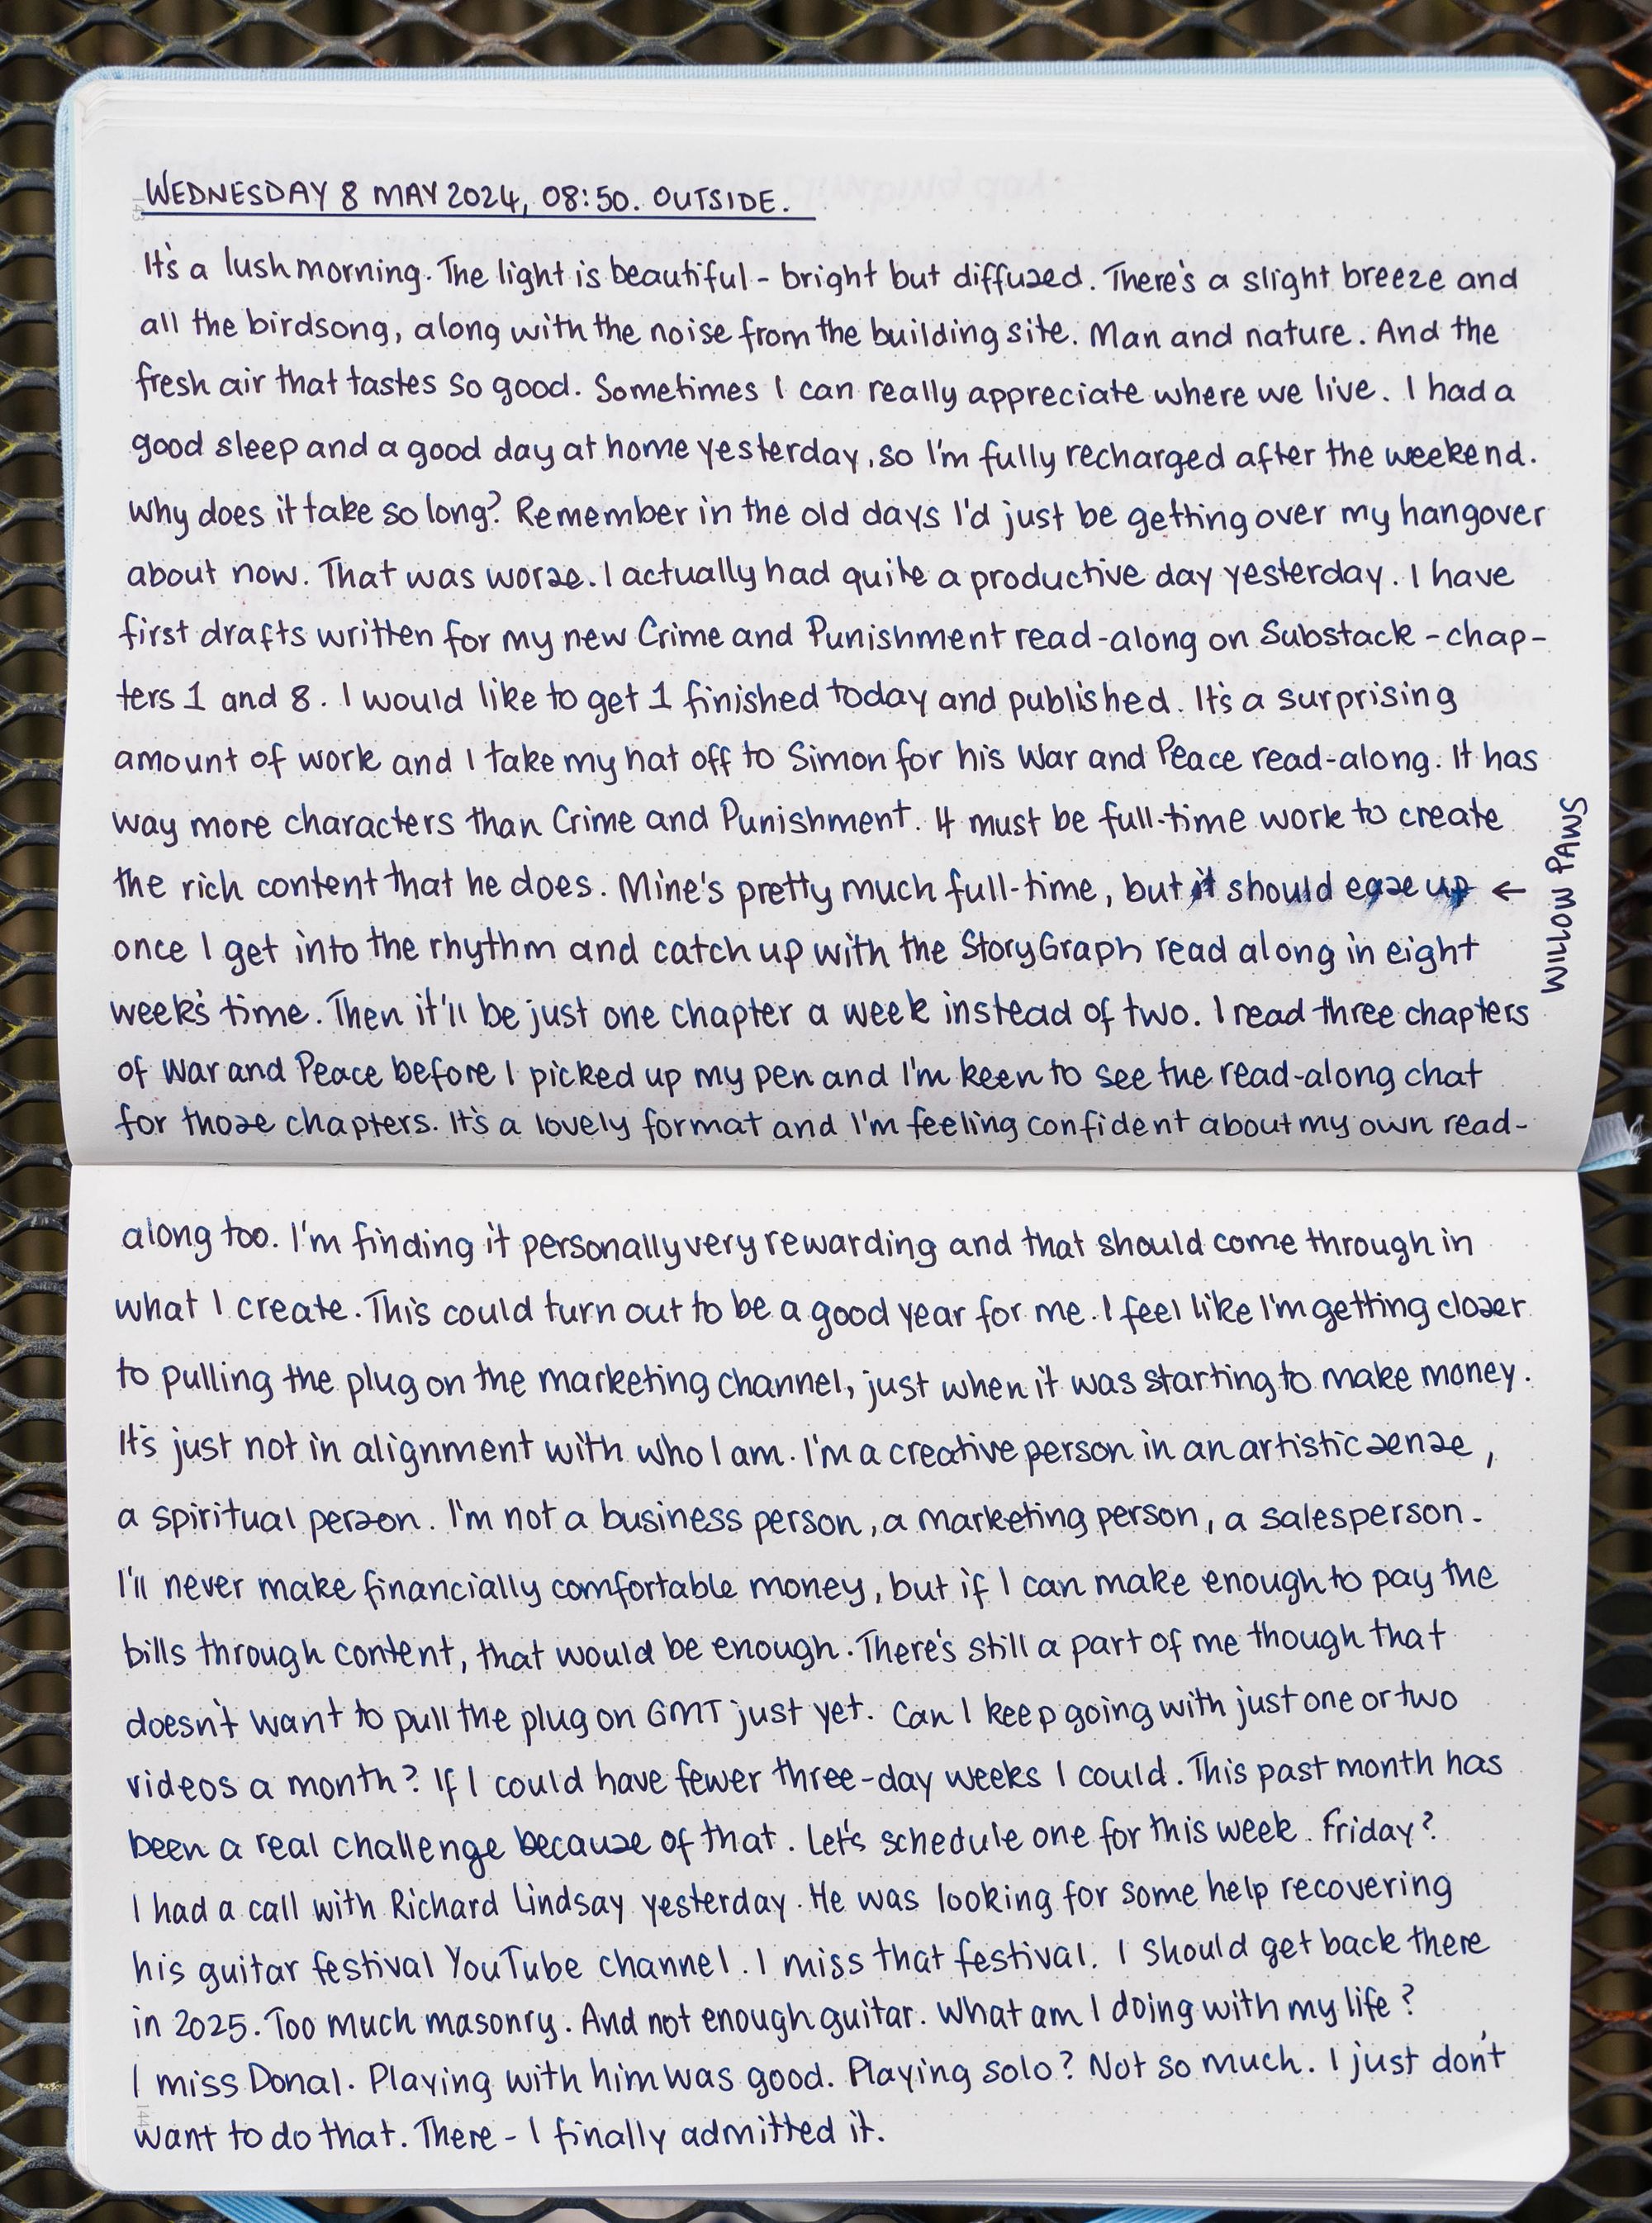 WEDNESDAY 8 MAY 2024, 08:50. OUTSIDE.
It's a lush morning. The light is beautiful - bright but diffused. There's a slight breeze and
all the birdsong, along with the noise from the building site. Man and nature. And the
fresh air that tastes so good. Sometimes I can really appreciate where we live. I had a
good sleep and a good day at home yesterday, so I'm fully recharged after the weekend.
Why does it take so long? Remember in the old days I'd just be getting over my hangover
about now. That was worse. I actually had quite a productive day yesterday. I have
first drafts written for my new Crime and Punishment read-along on Substack - chap-
ters 1 and 8. I would like to get 1 finished today and published. It's a surprising
amount of work and I take my hat off to Simon for his War and Peace read-along. It has
way more characters than Crime and Punishment. It must be full-time work to create
the rich content that he does. Mine's pretty much full-time, but it should ease up ←
WILLOW PAWS
once I get into the rhythm and catch up with the StoryGraph read along in eight
week's time. Then it'll be just one chapter a week instead of two. I read three chapters
of War and Peace before I picked up my pen and I'm keen to see the read-along chat
for those chapters. It's a lovely format and I'm feeling confident about my own read-
along too. I'm finding it personally very rewarding and that should come through in
what I create. This could turn out to be a good year for me. I feel like I'm getting closer
to pulling the plug on the marketing channel, just when it was starting to make money.
It's just not in alignment with who I am. I'm a creative person in an artistic sense,
a spiritual person. I'm not a business person, a marketing person, a salesperson.
I'll never make financially comfortable money, but if I can make enough to pay the
bills through content, that would be enough. There's still a part of me though that
doesn't want to pull the plug on GMT just yet. Can I keep going with just one or two
videos a month? If I could have fewer three-day weeks I could. This past month has
been a real challenge because of that. Let's schedule one for this week. Friday?
I had a call with Richard Lindsay yesterday. He was looking for some help recovering
his guitar festival YouTube channel. I miss that festival. I should get back there
in 2025. Too much masonry. And not enough guitar. What am I doing with my life?
I miss Donal. Playing with him was good. Playing solo? Not so much. I just don't
want to do that. There - I finally admitted it.